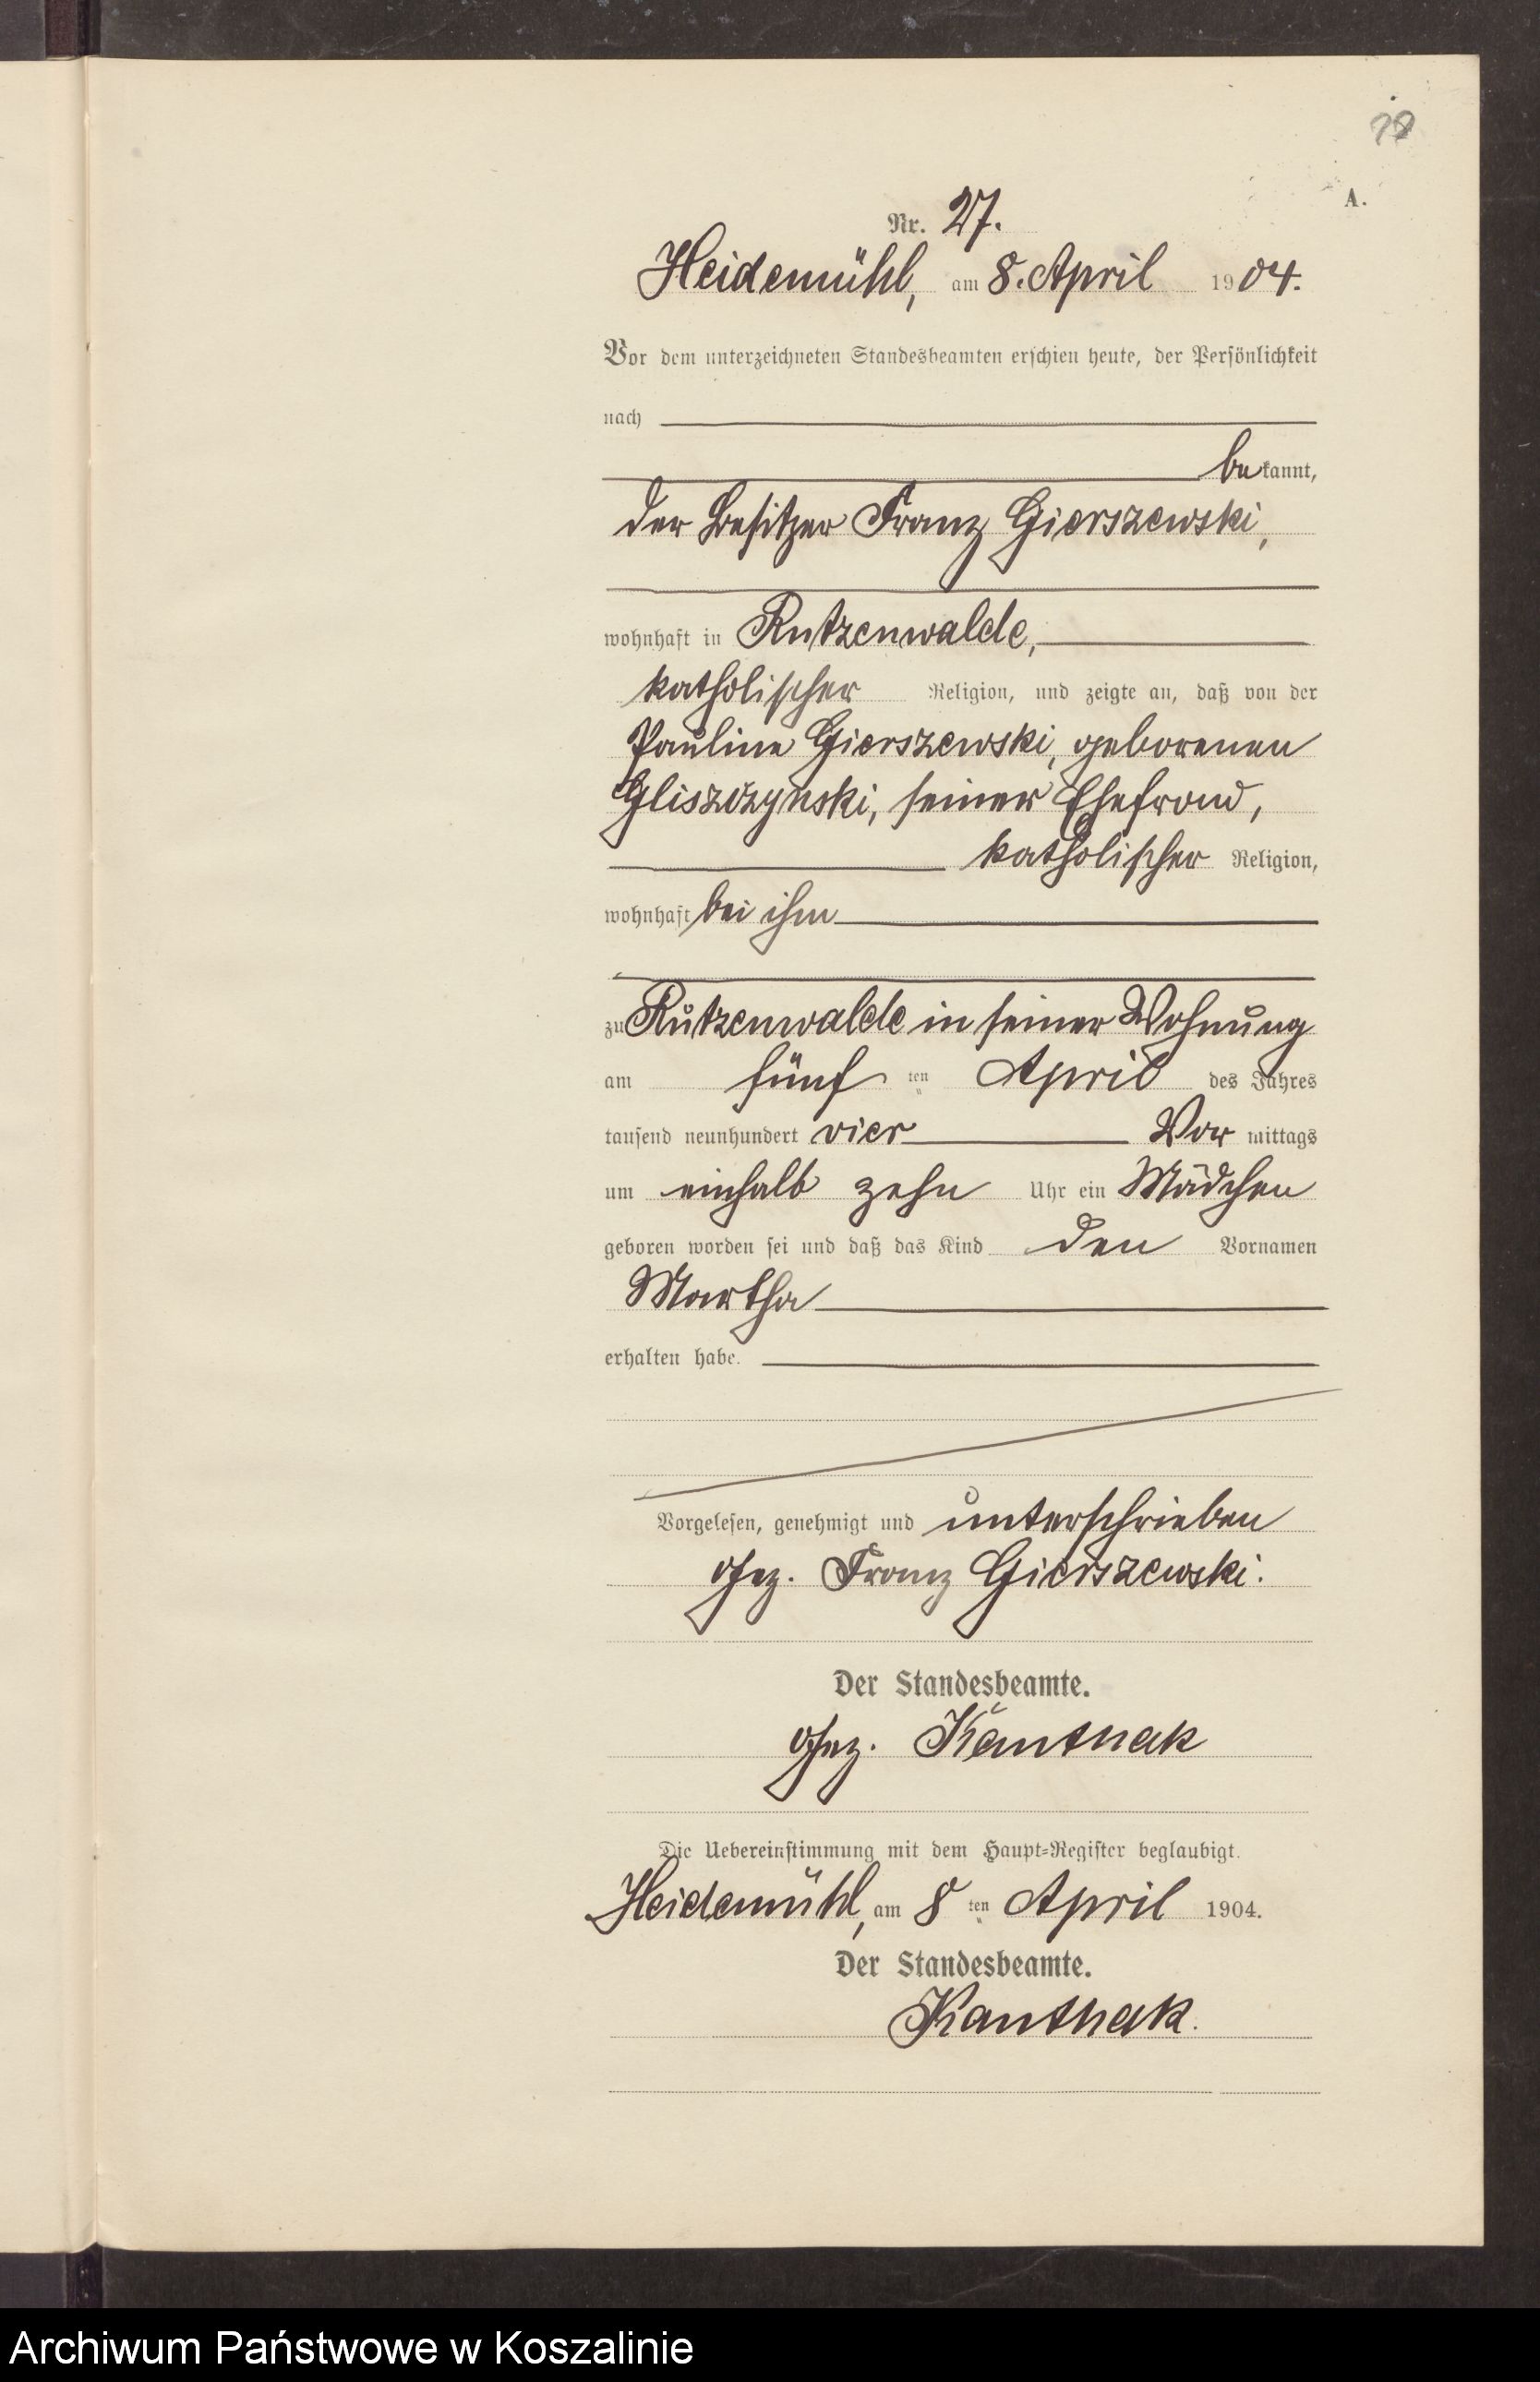 A.
Nr. 27.
Heidemühl, am 8. April 1904.
Vor dem unterzeichneten Standesbeamten erschien heute, der Persönlichkeit
nach
bekannt,
der Besitzer Franz Gierszewski,
wohnhaft in Rutzenwalde,
katholischer Religion, und zeigte an, daß von der
Pauline Gierszewski, geborenen
Gliszczynski, seiner Ehefrau,
katholischer Religion,
wohnhaft bei ihm
zu Rutzenwalde in seiner Wohnung
am fünf ten April des Jahres
tausend neunhundert vier Vor mittags
um einhalb zehn Uhr ein Mädchen
geboren worden sei und daß das Kind den Vornamen
Martha
erhalten habe.
Vorgelesen, genehmigt und unterschrieben
gez. Franz Gierszewski.
Der Standesbeamte.
gez. Kanthak
Die Uebereinstimmung mit dem Haupt-Register beglaubigt.
Heidemühl, am 8 ten April 1904.
Der Standesbeamte.
Kanthak.
Archiwum Państwowe w Koszalinie